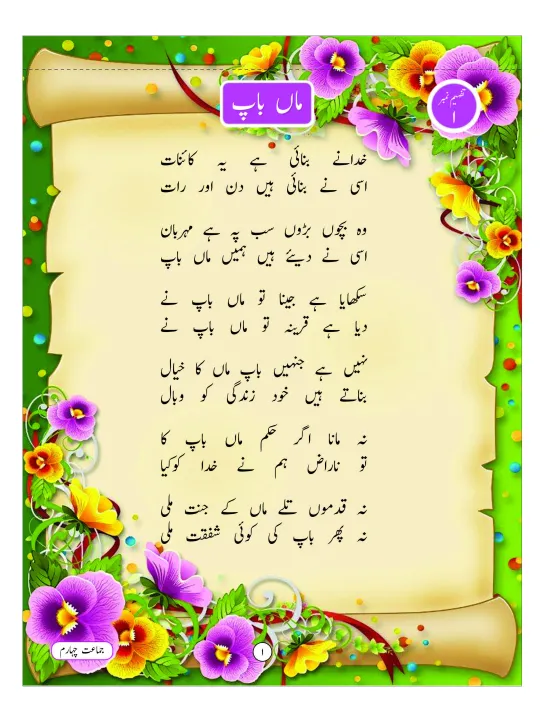 ماں باپ
تقسیم نمبر
۱
خدانے بنائی ہے یہ کائنات
اسی نے بنائی ہیں دن اور رات
وہ بچوں بڑوں سب پہ ہے مہربان
اسی نے دیئے ہیں ہمیں ماں باپ
سکھایا ہے جینا تو ماں باپ نے
دیا ہے قرینہ تو ماں باپ نے
نہیں ہے جنہیں باپ ماں کا خیال
بناتے ہیں خود زندگی کو وبال
نہ مانا اگر حکم ماں باپ کا
تو ناراض ہم نے خدا کوکیا
نہ قدموں تلے ماں کے جنت ملی
نہ پھر باپ کی کوئی شفقت ملی
جماعت چہارم
۱